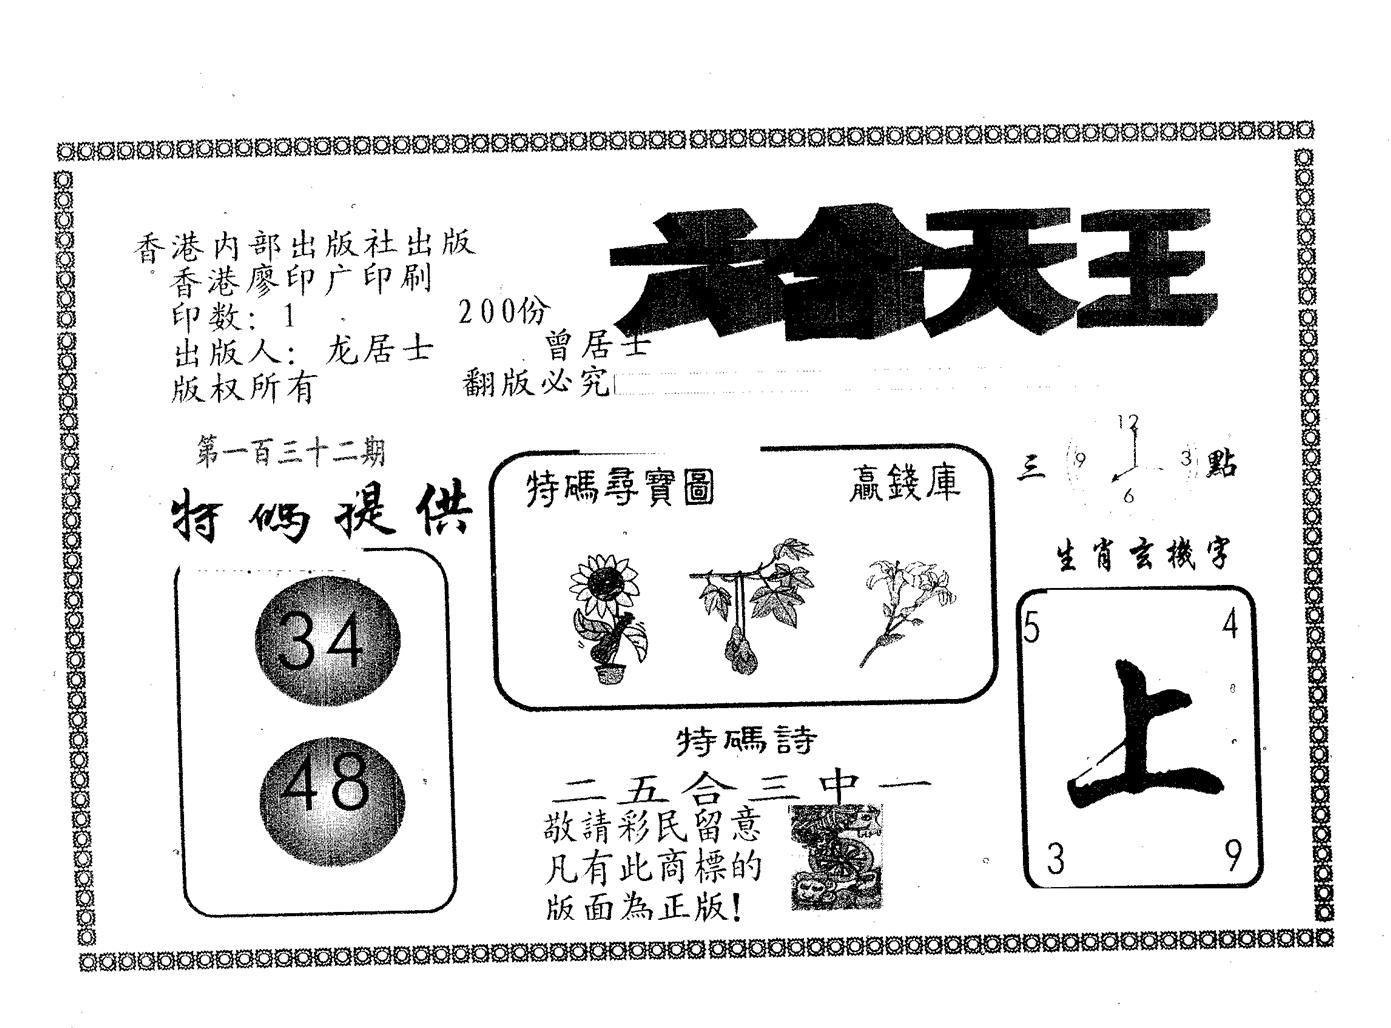 六合天王
香港内部出版社出版
香港廖印广印刷
印数: 1 200份
出版人: 龙居士 曾居士
版权所有 翻版必究
第一百三十二期
特碼提供
34
48
特碼尋寶圖 贏錢庫
三 12 3 6 9 點
生肖玄機字
5 4
上
3 9
特碼詩
二五合三中一
敬請彩民留意
凡有此商標的
版面為正版!